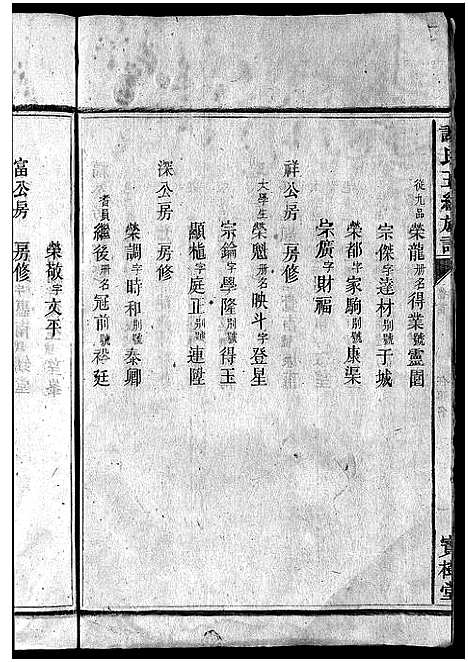 氏五續族譜
寶樹堂
從九品榮龍册名得業號靈園
宗傑字達材别號于城
榮都字家駒别號康渠
宗廣字財福
祥公房 房修
大學生榮魁册名映斗字登星
宗錀字學隆别號得玉
顯植字庭正别號連陞
深公房 房修
榮調字時和别號泰卿
耆員繼後册名冠前號裕廷
榮敬字文平
富公房 房修